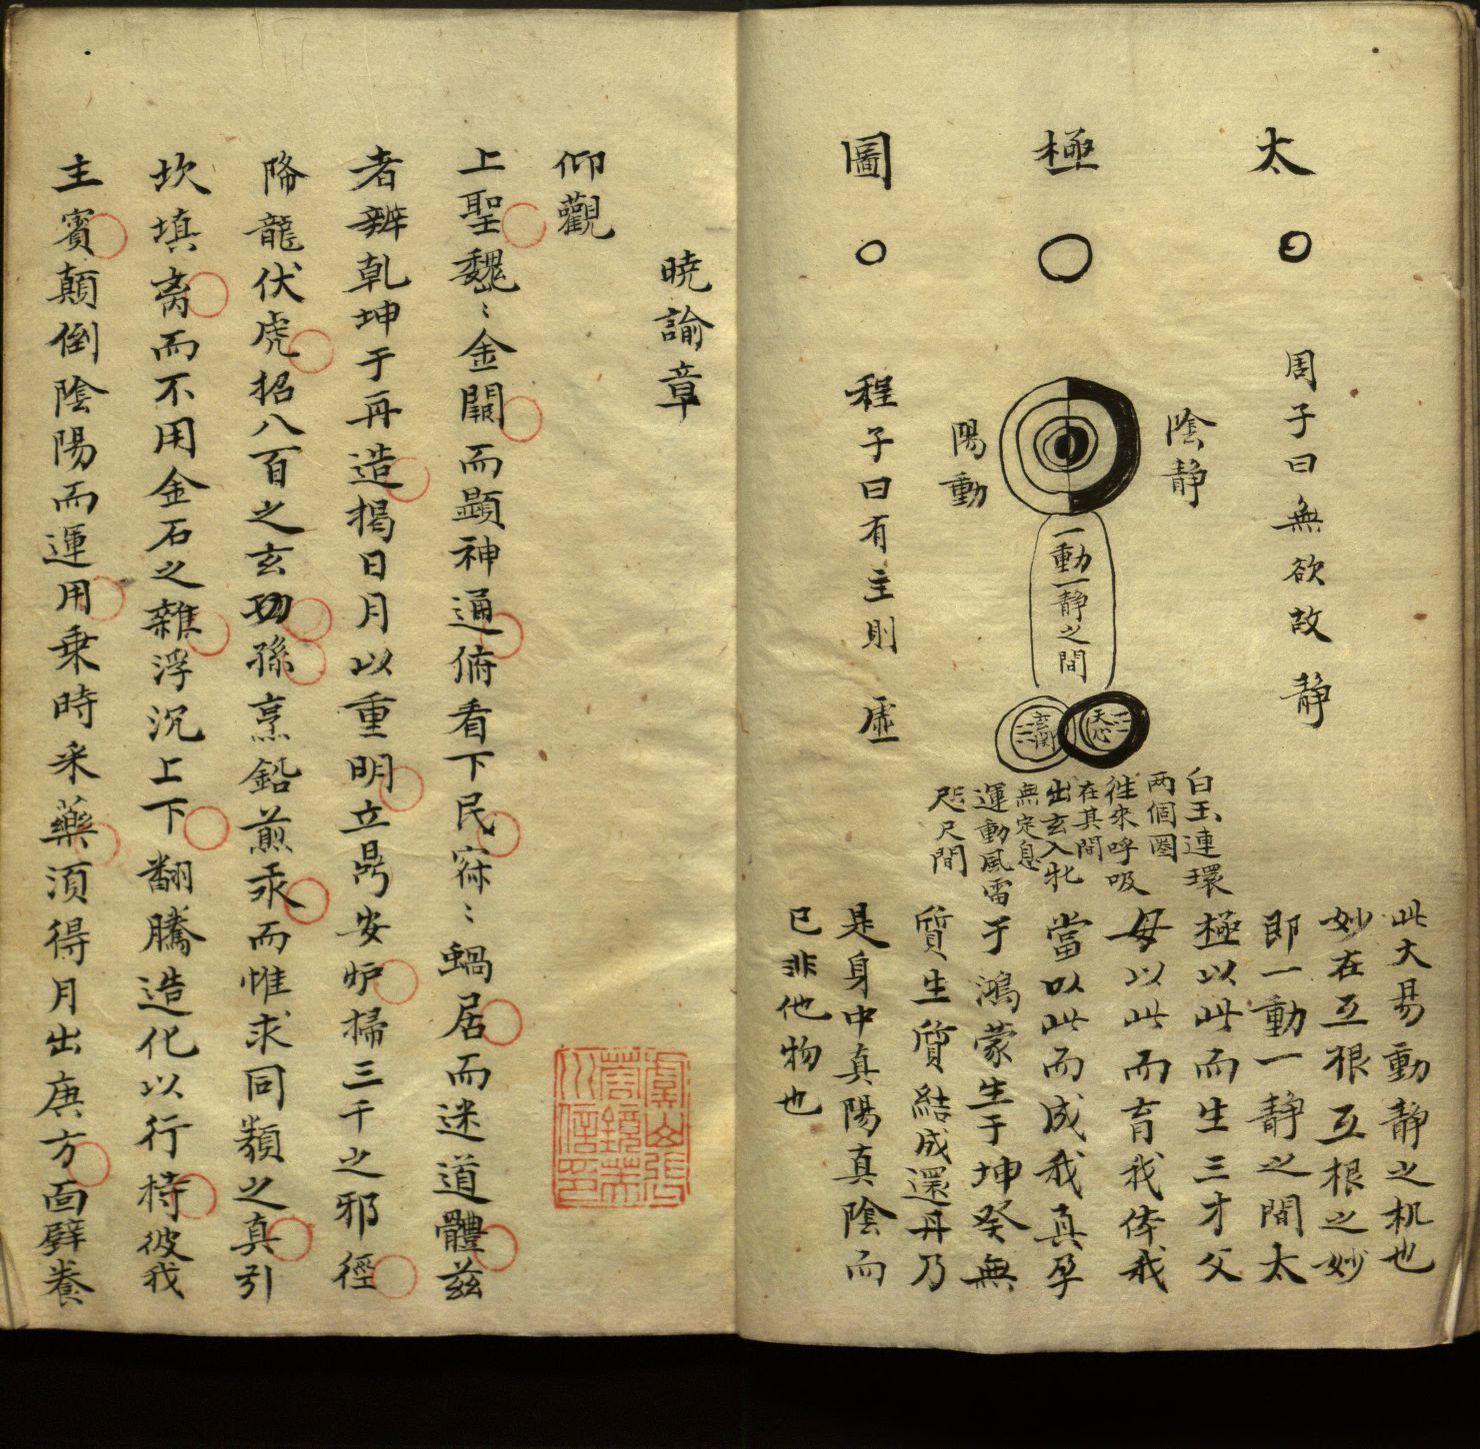 太極圖
周子曰無欲故靜
陰靜
陽動
一動一靜之間
天心
玄関
程子曰有主則虛
白玉連環
两個圏
徃來呼吸
在其間
出玄入牝
無定息
運動風雷
咫尺間
此大易動靜之机也
妙在互根互根之妙
即一動一靜之間太
極以此而生三才父
母以此而育我俸我
當以此而成我真孕
于鴻蒙生于坤癸無
質生質結成還丹乃
是身中真陽真陰而
已非他物也
曉諭章
仰觀
上聖巍〻金闕而顕神通俯看下民寐〻蝸居而迷道體兹
者辨乾坤于再造揭日月以重明立鼎安炉掃三千之邪徑
降龍伏虎招八百之玄功孫烹鉛煎汞而惟求同類之真引
坎填离而不用金石之雜浮沉上下翻騰造化以行持彼我
主賓顛倒陰陽而運用乗時采藥須得月出庚方面壁養